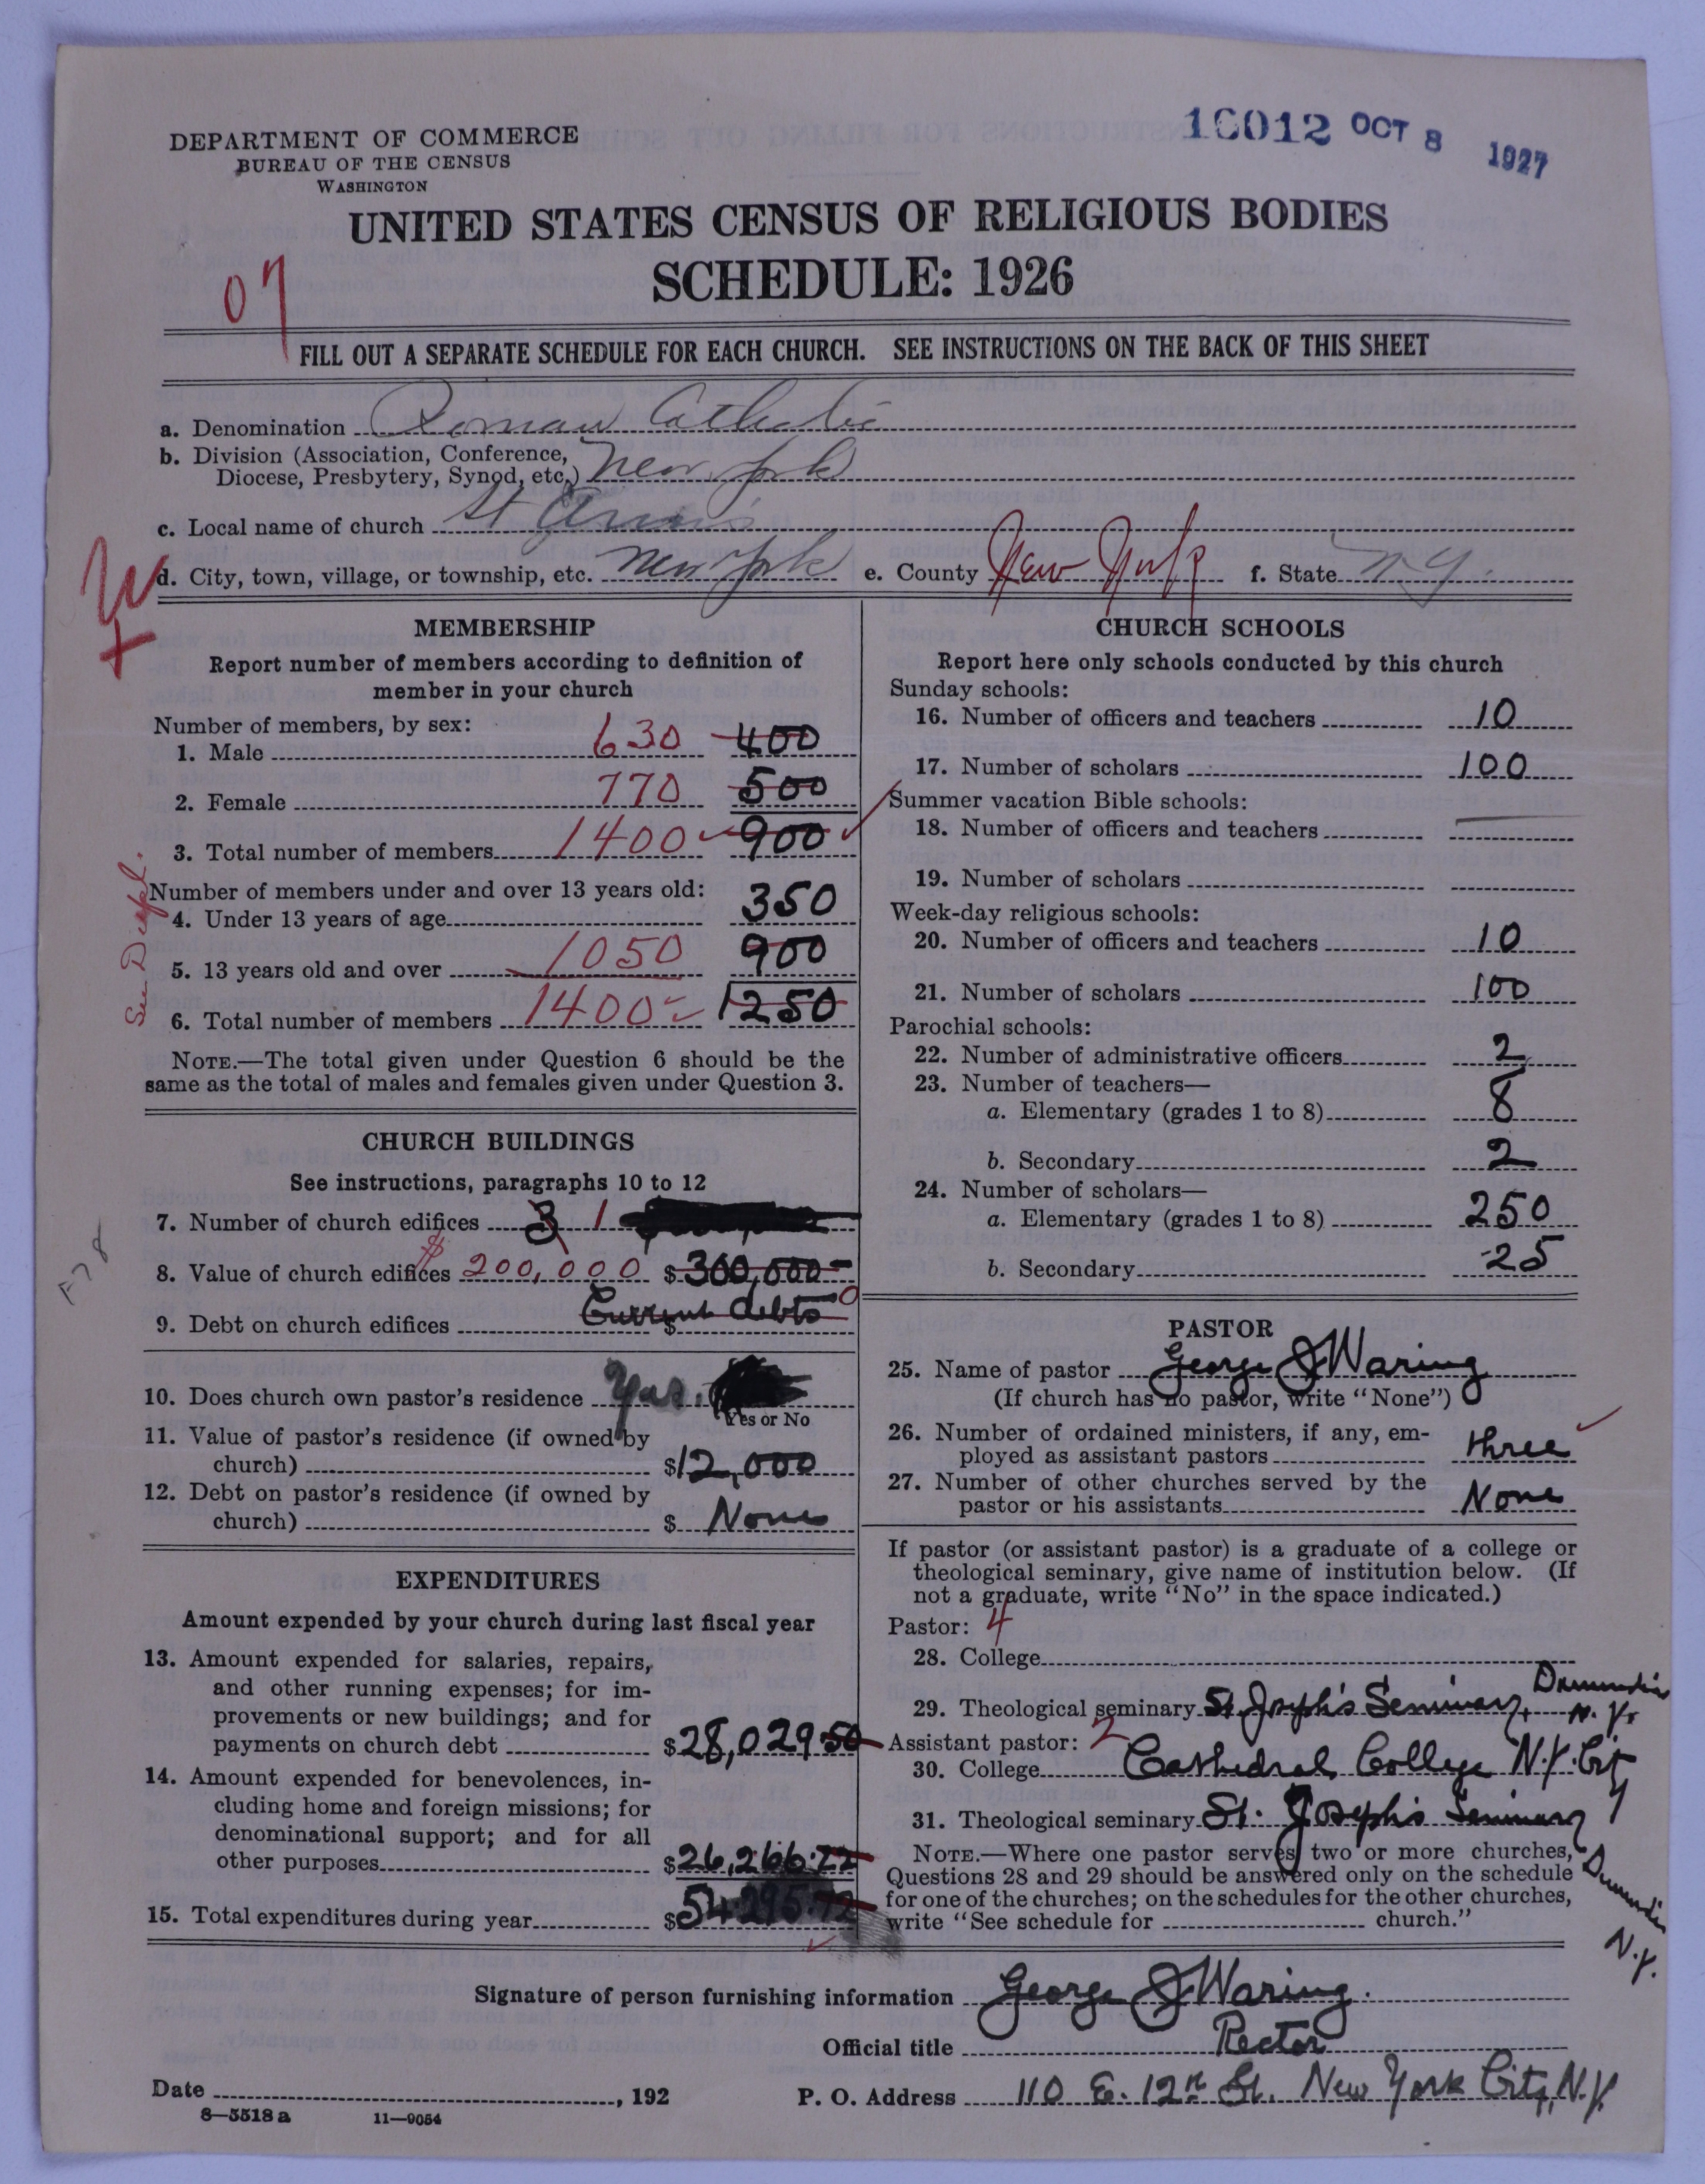 16012 OCT 8 1927
DEPARTMENT OF COMMERCE
BUREAU OF THE CENSUS
WASHINGTON
UNITED STATES CENSUS OF RELIGIOUS BODIES
SCHEDULE: 1926
07
FILL OUT A SEPARATE SCHEDULE FOR EACH CHURCH. SEE INSTRUCTIONS ON THE BACK OF THIS SHEET
a. Denomination Roman Catholic
b. Division (Association, Conference,
Diocese, Presbytery, Synod, etc.) New York
c. Local name of church St Ann's
d. City, town, village, or township, etc. New York e. County New York f. State N.Y.
MEMBERSHIP
Report number of members according to definition of
member in your church
Number of members, by sex:
1. Male 630 400
2. Female 770 500
3. Total number of members 1400 900
Number of members under and over 13 years old:
4. Under 13 years of age 350
5. 13 years old and over 1050 900
6. Total number of members 1400 1250
See Dupl.
NOTE.—The total given under Question 6 should be the
same as the total of males and females given under Question 3.
CHURCH BUILDINGS
See instructions, paragraphs 10 to 12
7. Number of church edifices 3 1
8. Value of church edifices $200,000 $300,000-
9. Debt on church edifices $ Current debts 0
F78
10. Does church own pastor's residence Yes.
Yes or No
11. Value of pastor's residence (if owned by
church) $12,000
12. Debt on pastor's residence (if owned by
church) $ None
EXPENDITURES
Amount expended by your church during last fiscal year
13. Amount expended for salaries, repairs,
and other running expenses; for im-
provements or new buildings; and for
payments on church debt $28,029.50
14. Amount expended for benevolences, in-
cluding home and foreign missions; for
denominational support; and for all
other purposes $26,266.22
15. Total expenditures during year $54,295.72
CHURCH SCHOOLS
Report here only schools conducted by this church
Sunday schools:
16. Number of officers and teachers 10
17. Number of scholars 100
Summer vacation Bible schools:
18. Number of officers and teachers
19. Number of scholars
Week-day religious schools:
20. Number of officers and teachers 10
21. Number of scholars 100
Parochial schools:
22. Number of administrative officers 2
23. Number of teachers—
a. Elementary (grades 1 to 8) 8
b. Secondary 2
24. Number of scholars—
a. Elementary (grades 1 to 8) 250
b. Secondary 25
PASTOR
25. Name of pastor George J Waring
(If church has no pastor, write "None")
26. Number of ordained ministers, if any, em-
ployed as assistant pastors three
27. Number of other churches served by the
pastor or his assistants None
If pastor (or assistant pastor) is a graduate of a college or
theological seminary, give name of institution below. (If
not a graduate, write "No" in the space indicated.)
Pastor: 4
28. College
29. Theological seminary St. Joseph's Seminary, Dunwoodie N.Y.
Assistant pastor: 2
30. College Cathedral College N.Y. City
31. Theological seminary St. Joseph's Seminary Dunwoodie N.Y.
NOTE.—Where one pastor serves two or more churches,
Questions 28 and 29 should be answered only on the schedule
for one of the churches; on the schedules for the other churches,
write "See schedule for church."
Signature of person furnishing information George J Waring.
Official title Rector
Date , 192 P. O. Address 110 E. 12th St. New York City, N.Y.
8—5518 a 11—9054